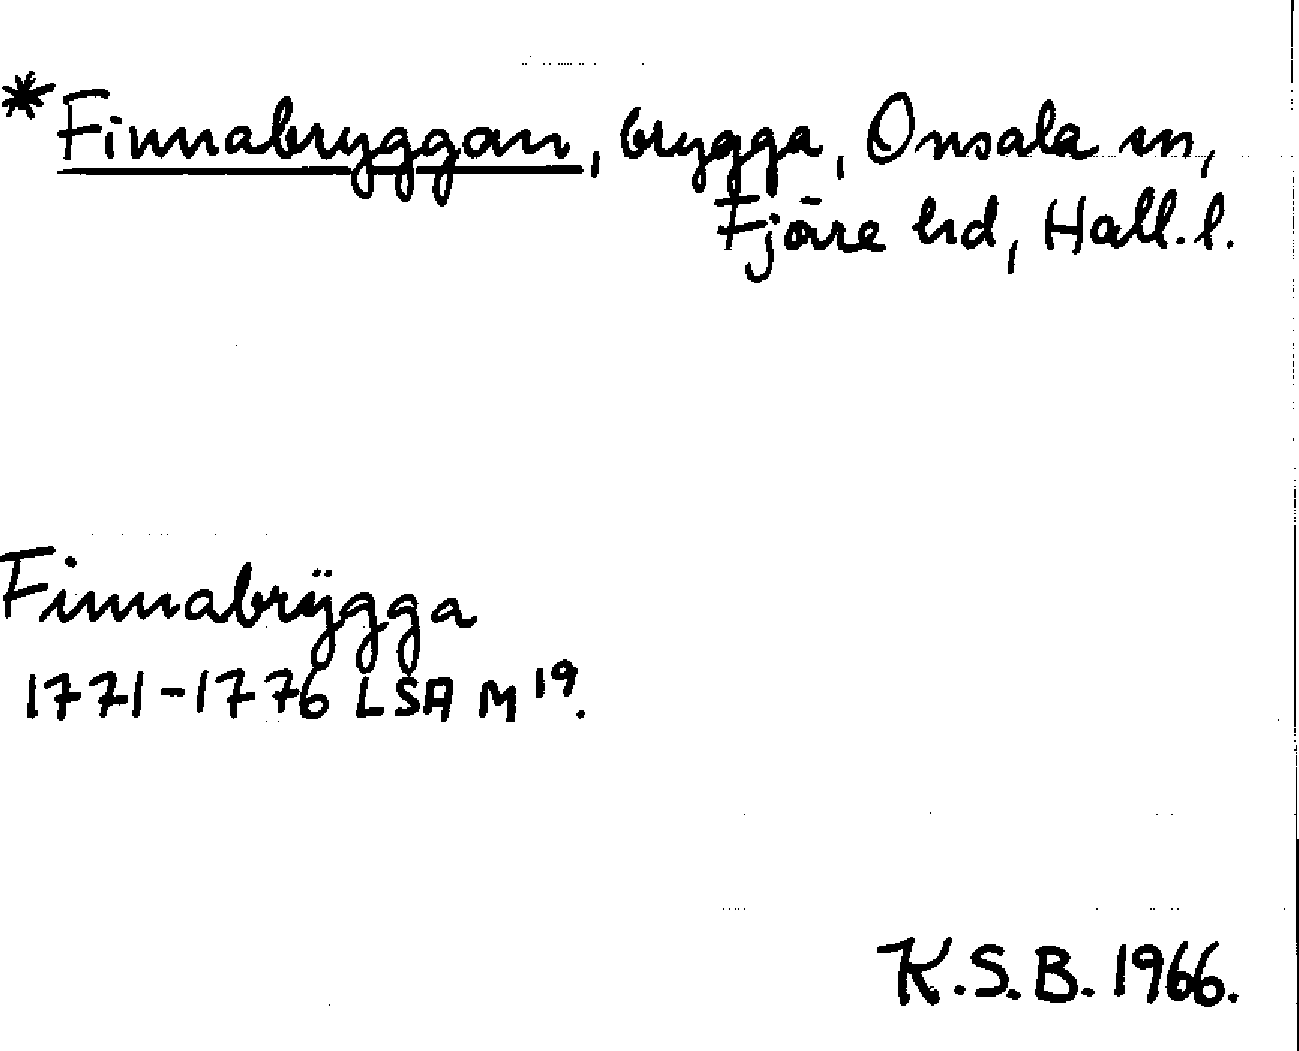 *Finnabryggan, brygga, Onsala sn,
Fjäre hd, Hall. l.
Finnabrÿgga
1771-1776 LSA M 19.
K.S.B. 1966.